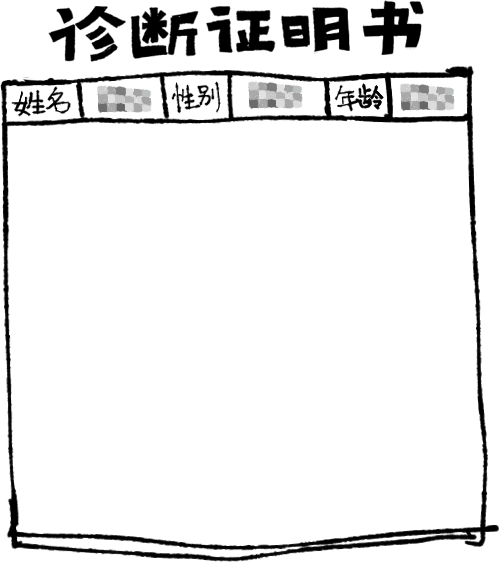 诊断证明书
姓名 性别 年龄